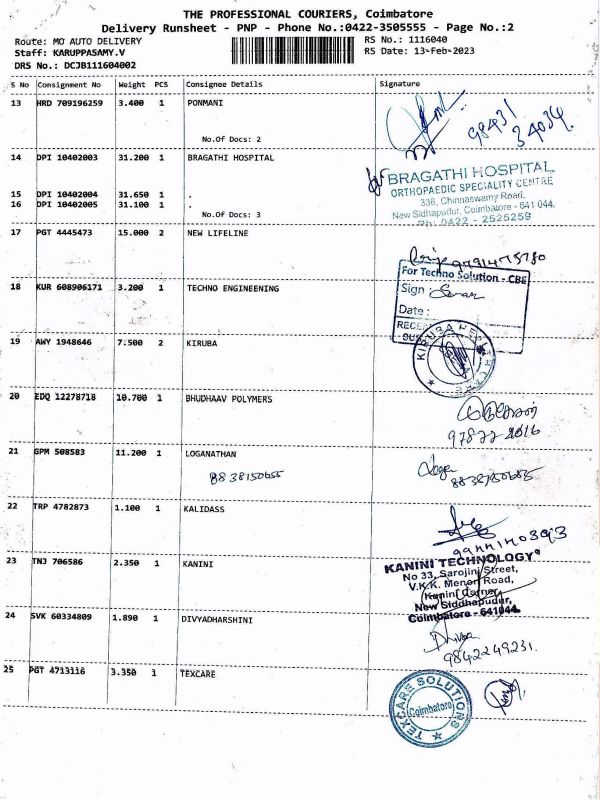 THE PROFESSIONAL COURIERS, Coimbatore
Delivery Runsheet - PNP - Phone No.:0422-3505555 - Page No.:2
Route: MO AUTO DELIVERY RS No.: 1116040
Staff: KARUPPASAMY.V RS Date: 13-Feb-2023
DRS No.: DCJB111604002
S No Consignment No Weight PCS Consignee Details Signature
13 HRD 709196259 3.400 1 PONMANI
98431
34034.
No.Of Docs: 2
14 DPI 10402003 31.200 1 BRAGATHI HOSPITAL
BRAGATHI HOSPITAL
ORTHOPAEDIC SPECIALITY CENTRE
15 DPI 10402004 31.650 1 .
336, Chinnaswamy Road,
16 DPI 10402005 31.100 1 .
New Sidhapudur, Coimbatore - 641 044.
No.Of Docs: 3
Ph: 0422 - 2525259
17 PGT 4445473 15.000 2 NEW LIFELINE
For Techno Solution - CBE
18 KUR 608906171 3.200 1 TECHNO ENGINEERING
Sign :
Date :
19 AWY 1948646 7.500 2 KIRUBA
KIRUBA
20 EDQ 12278718 10.700 1 BHUDHAAV POLYMERS
21 GPM 508583 11.200 1 LOGANATHAN
8838150655
8838150655
22 TRP 4782873 1.100 1 KALIDASS
23 TNJ 706586 2.350 1 KANINI
KANINI TECHNOLOGY
No 33, Sarojini Street,
V.K.K. Menon Road,
Kanini Corner,
New Siddhapudur,
Coimbatore - 641044.
24 SVK 60334809 1.890 1 DIVYADHARSHINI
9842249231.
25 PGT 4713116 3.350 1 TEXCARE
TEXCARE SOLUTIONS
Coimbatore